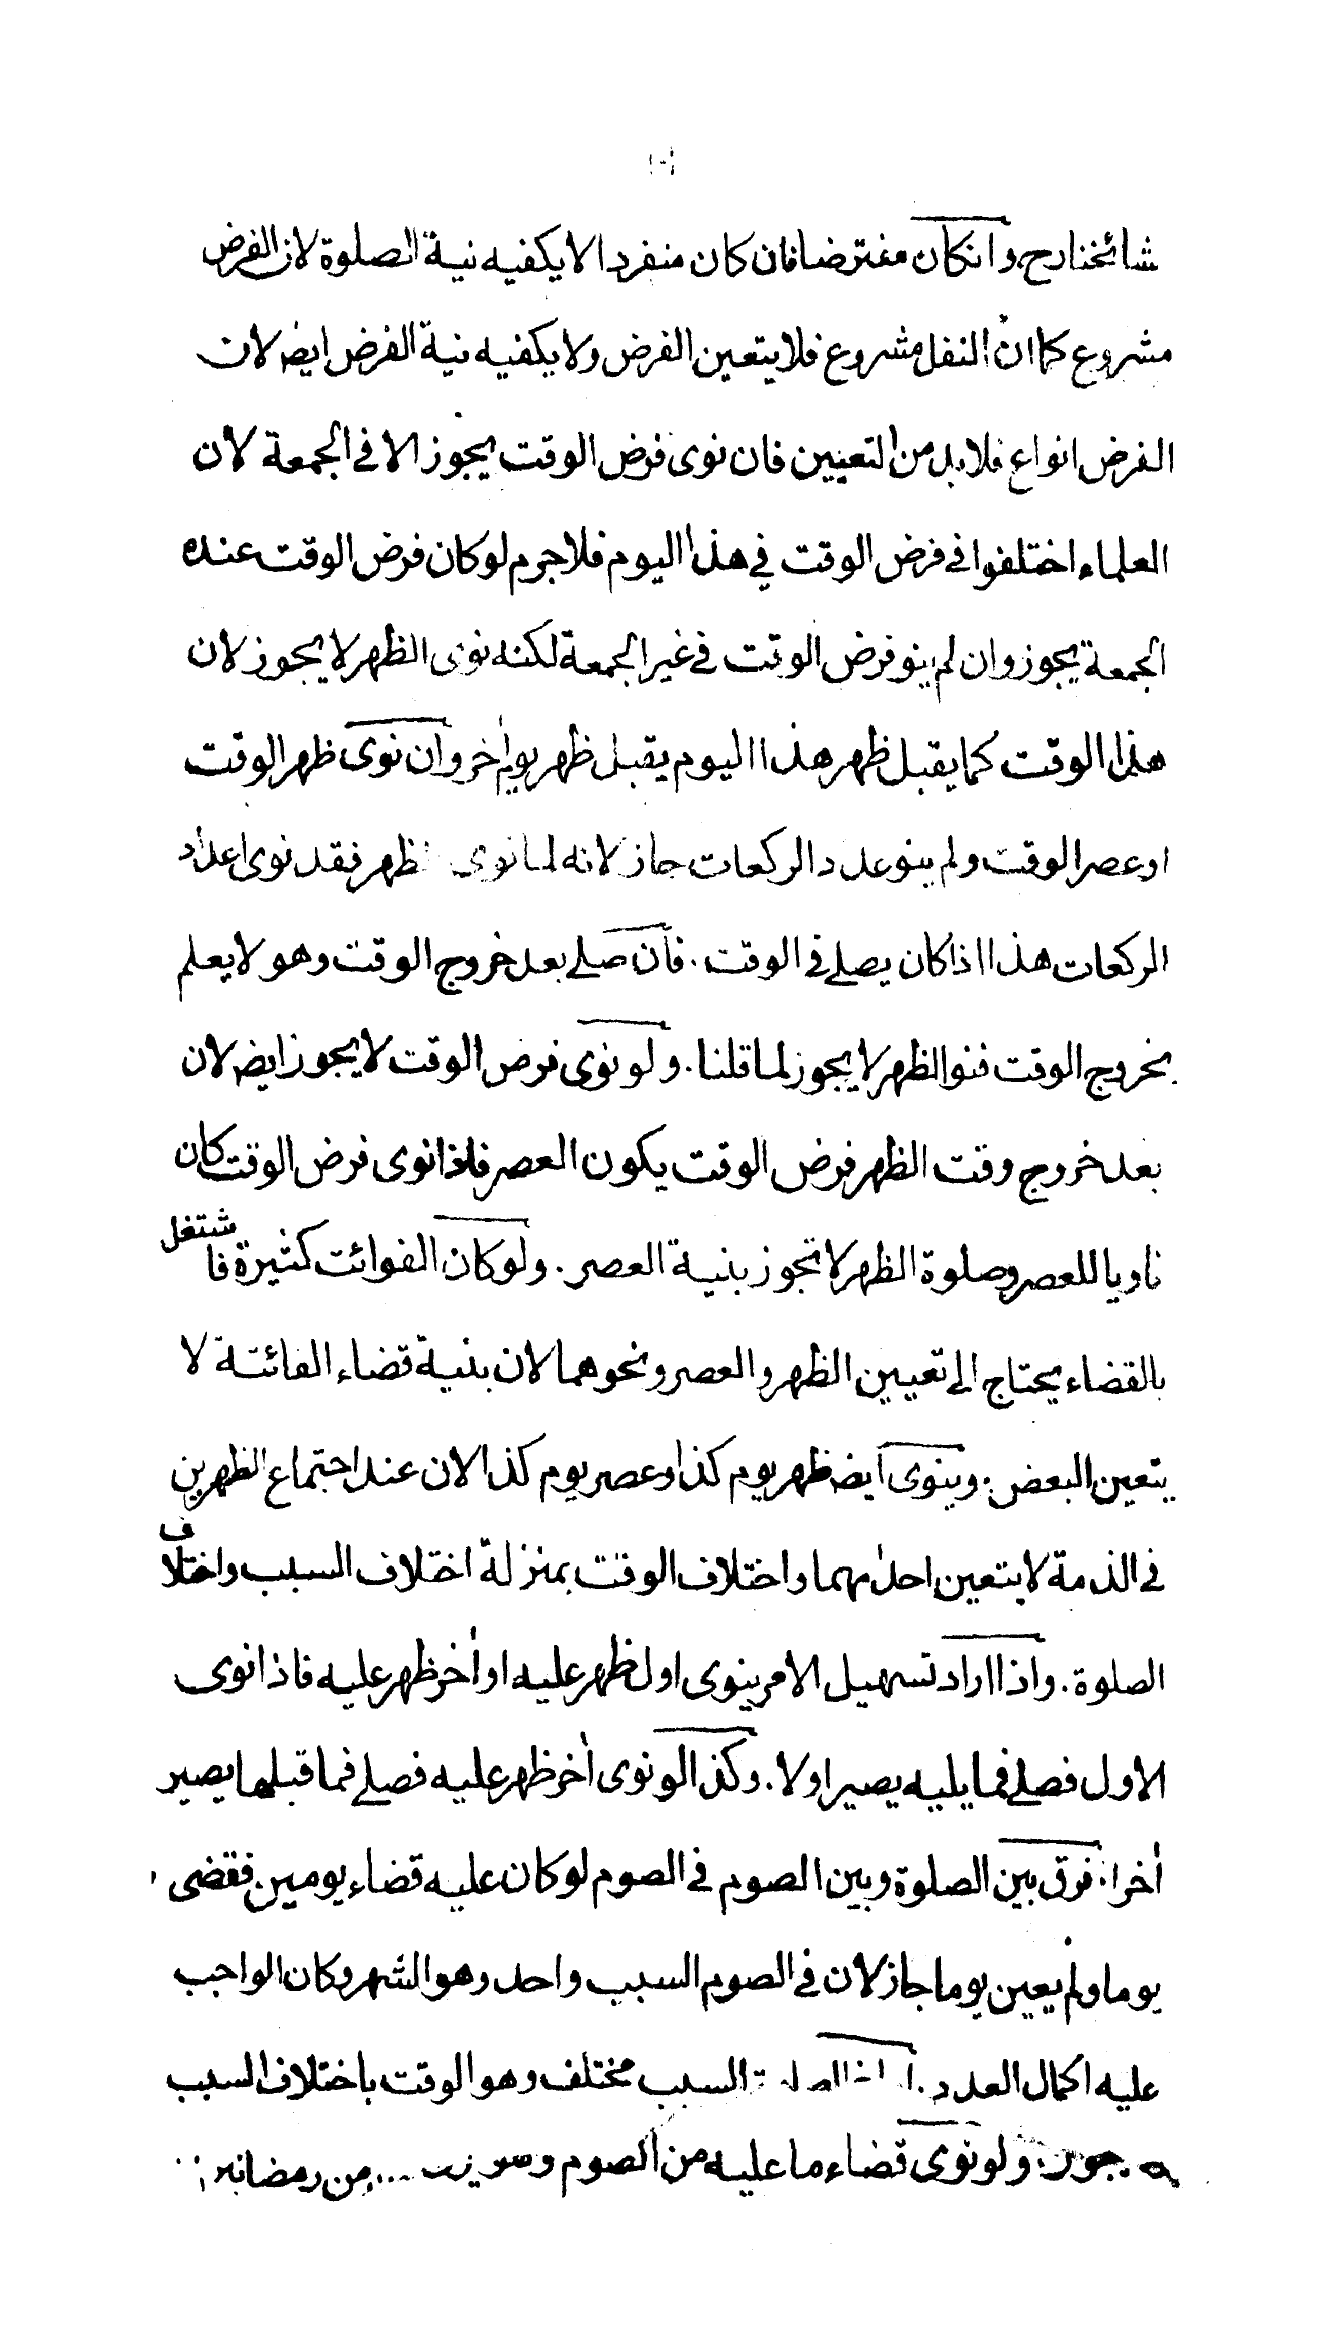 شائخنا رح وانكان مفترضا فان كان منفردا لا يكفيه نية الصلوة لان الفرض
مشروع كما ان النفل مشروع فلا يتعين الفرض ولا يكفيه نية الفرض ايضا لان
الفرض انواع فلا بد من التعيين فان نوى فرض الوقت يجوز الا في الجمعة لان
العلماء اختلفوا في فرض الوقت في هذا اليوم فلا جرم لو كان فرض الوقت عنده
الجمعة يجوز وان لم ينو فرض الوقت في غير الجمعة لكنه نوى الظهر لا يجوز لان
هذا الوقت كما يقبل ظهر هذا اليوم يقبل ظهر يوم اخر وان نوى ظهر الوقت
او عصر الوقت ولم ينو عدد الركعات جاز لانه لما نوى الظهر فقد نوى اعداد
الركعات هذا اذا كان يصلے في الوقت . فان صلے بعد خروج الوقت وهو لا يعلم
بخروج الوقت فنوا الظهر لا يجوز لما قلنا . ولو نوى فرض الوقت لا يجوز ايضا لان
بعد خروج وقت الظهر فرض الوقت يكون العصر فاذا نوى فرض الوقت كان
ناويا للعصر وصلوة الظهر لا تجوز بنية العصر . ولو كان الفوائت كثيرة فاشتغل
بالقضاء يحتاج الى تعيين الظهر والعصر ونحوهما لان بنية قضاء الفائتة لا
يتعين البعض . وينوى ايضا ظهر يوم كذا وعصر يوم كذا لان عند اجتماع الظهرين
في الذمة لا يتعين احدٰهما واختلاف الوقت بمنزلة اختلاف السبب واختلاف
الصلوة . واذا اراد تسهيل الامر ينوى اول ظهر عليه او اٰخر ظهر عليه فاذا نوى
الاول فصلے فما يليه يصير اولا . وكذا لو نوى اٰخر ظهر عليه فصلے فما قبلها يصير
اٰخرا . فرق بين الصلوة وبين الصوم في الصوم لو كان عليه قضاء يومين فقضى
يوما ولم يعين يوما جاز لان في الصوم السبب واحد وهو الشهر وكان الواجب
عليه اكمال العدد . السبب مختلف وهو الوقت باختلاف السبب
ولو نوى قضاء ما عليه من الصوم من رمضان